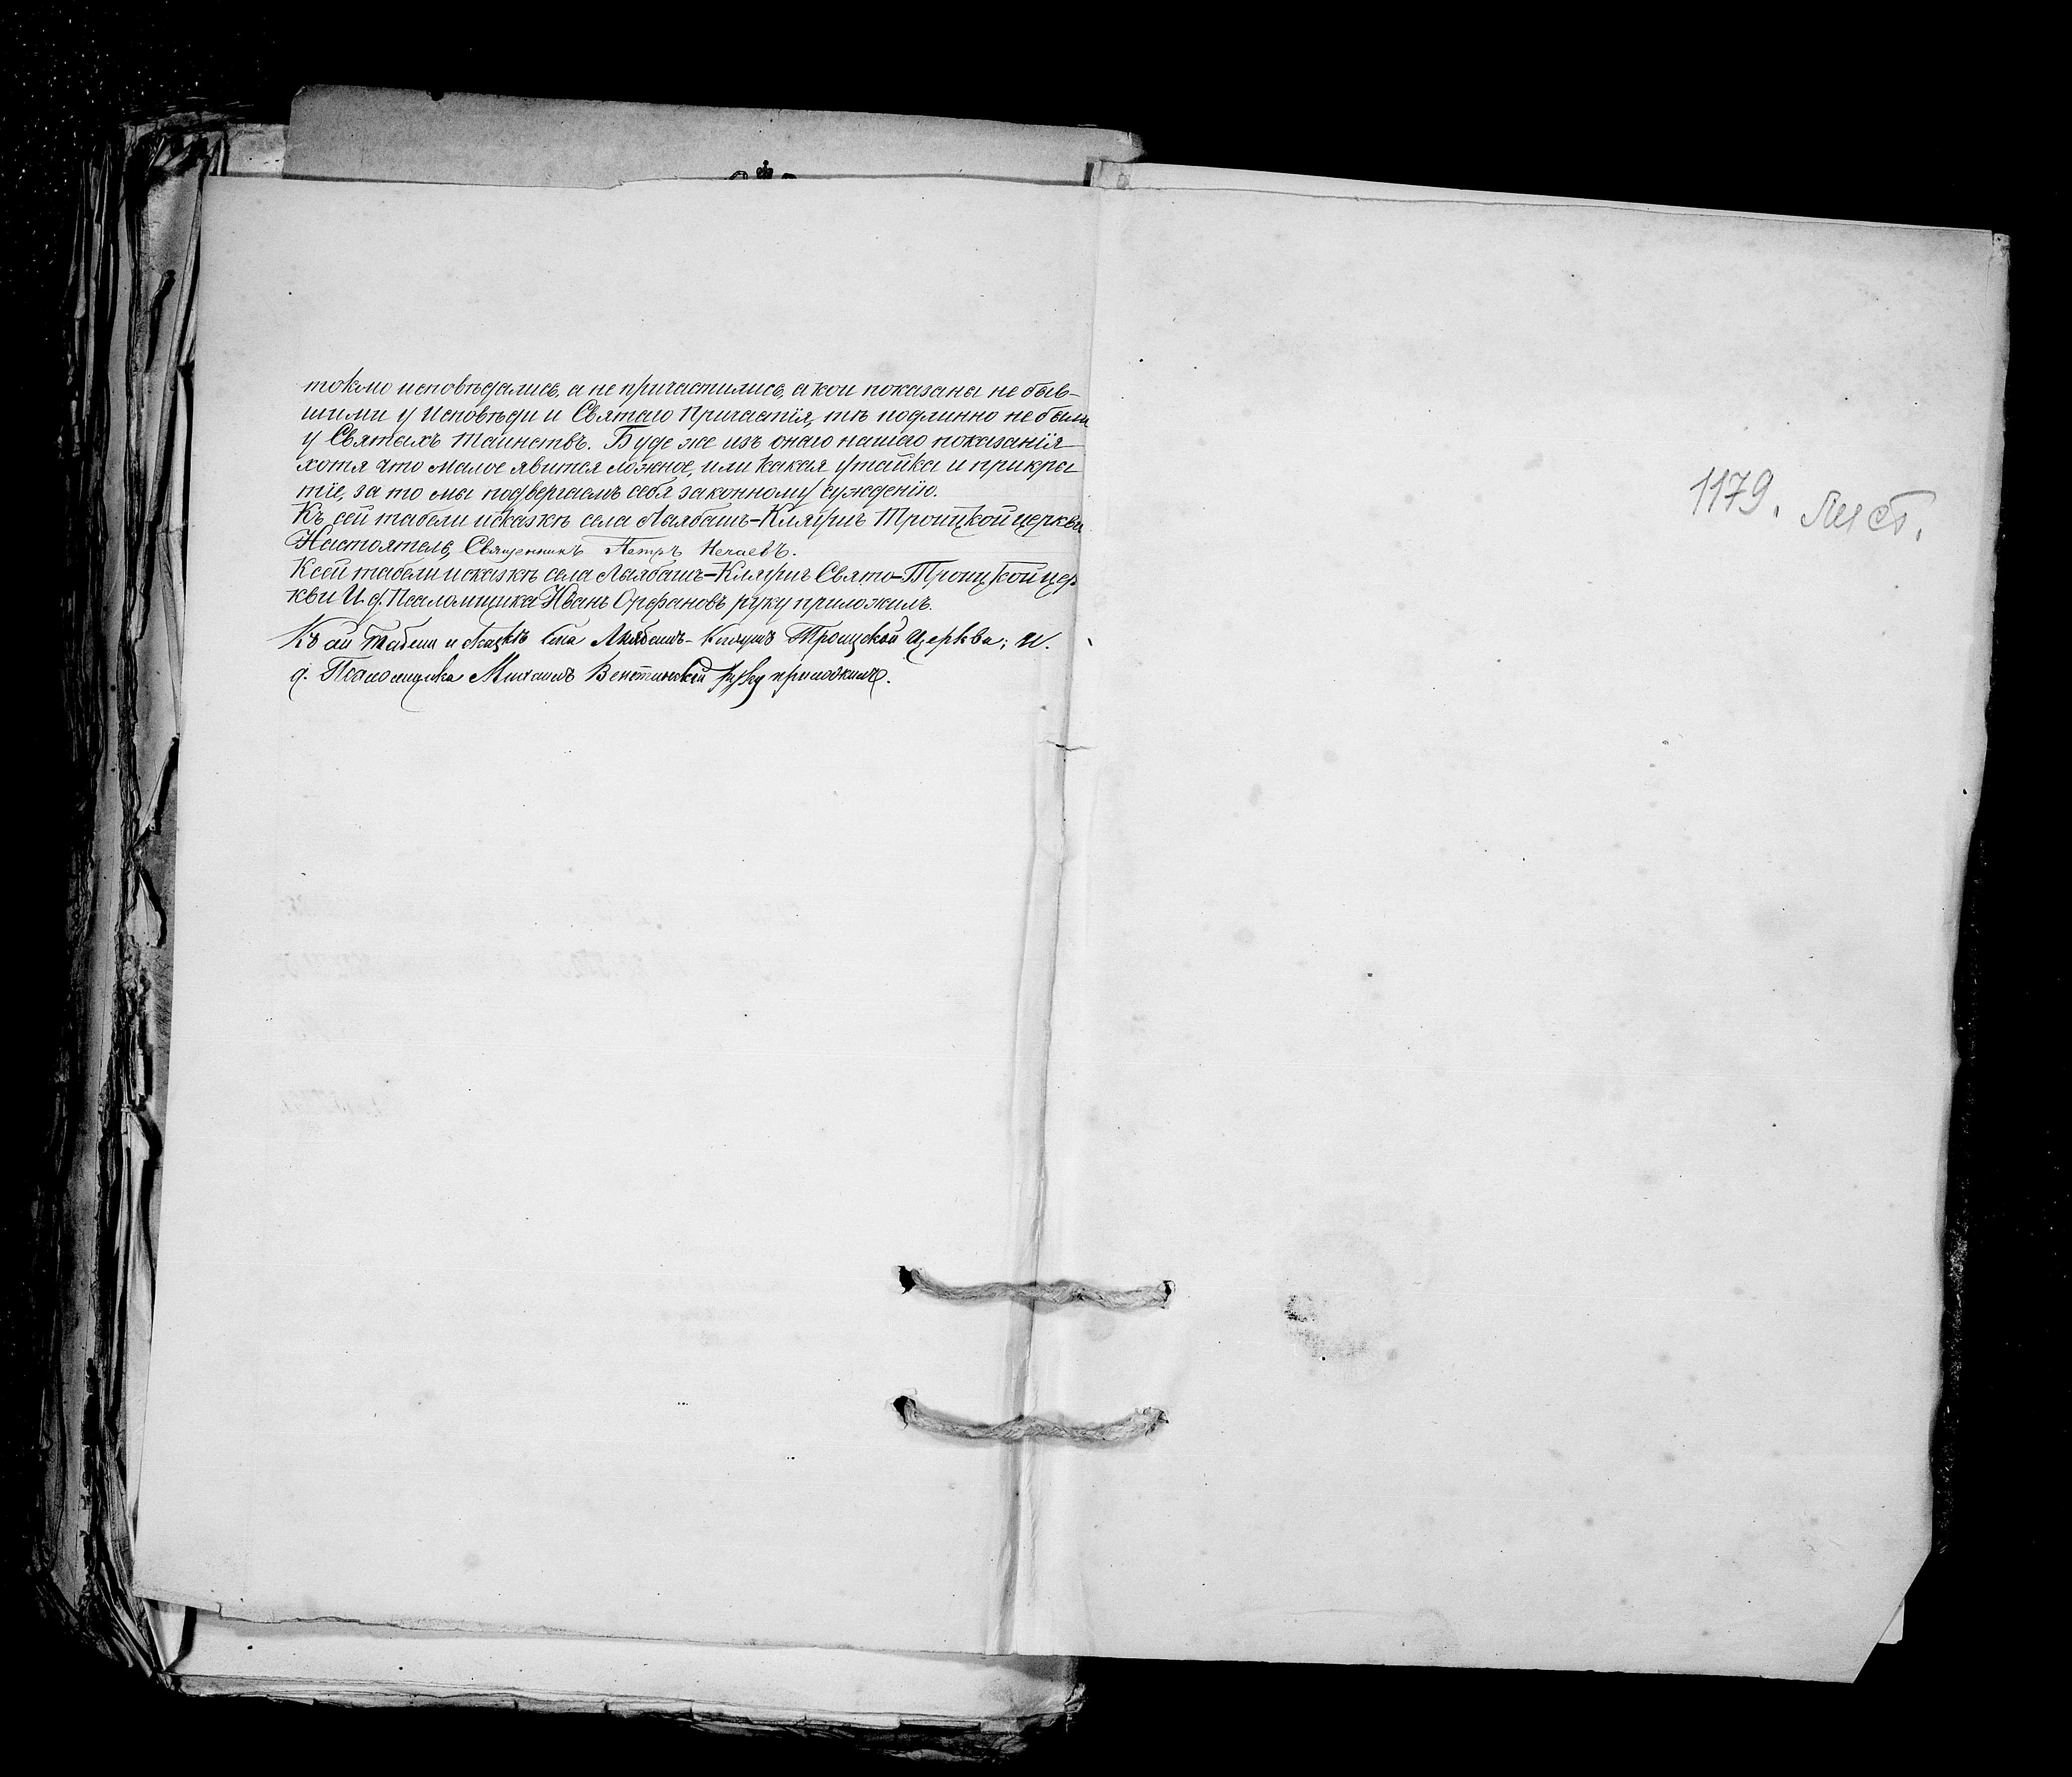 токмо исповѣдались, а не причастились, а кои показаны не быв-
шими у Исповѣди и Святаго Причастія, тѣ подлинно не были
у Святыхъ таинствъ. Буде же изъ онаго нашего показанія
хотя что малое явится ложное, или какая утайка и прикры
тіе, за то мы подвергаемъ себя законному сужденію.
Къ сей табели и сказкѣ села Ляябашъ-Кляушъ Троицкой церкви
Настоятель, Священникъ Петръ Нечаевъ.
К сей табели и сказкѣ села Ляябашъ-Кляушъ Свято-Троицкой цер
кви И. д. Псаломщика Иванъ Орфановъ руку приложилъ.
Къ сей табели и сказкѣ села Троицкой Церкви; И.
д. Псаломщика Михаилъ руку приложилъ.
1179. Лист.